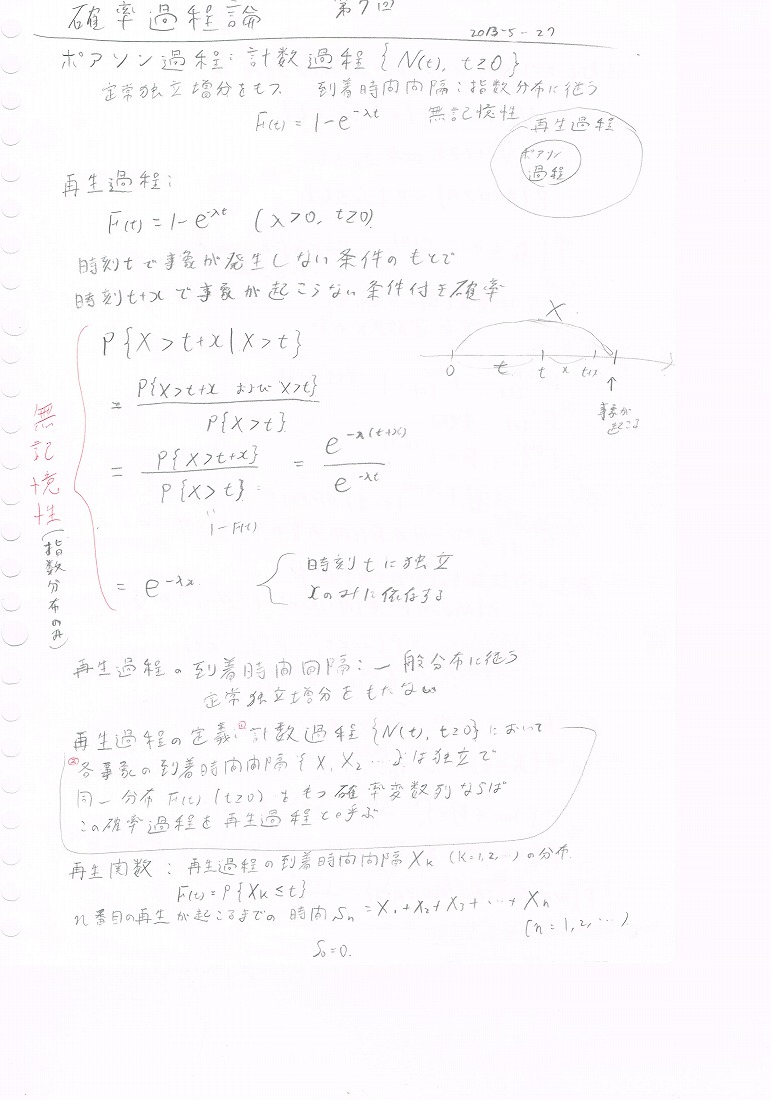 確率過程論 第7回
2013-5-27
ポアソン過程: 計数過程 {N(t), t≥0}
定常独立増分をもつ 到着時間間隔: 指数分布に従う
F(t) = 1-e^{-λt} 無記憶性
再生過程
ポアソン
過程
再生過程:
F(t) = 1-e^{-λt} (λ>0, t≥0)
時刻tで事象が発生しない条件のもとで
時刻t+xで事象が起こらない条件付き確率
P{X>t+x|X>t}
X
0 t t x t+x
↑
事象が
起こる
= P{X>t+x および X>t} / P{X>t}
= P{X>t+x} / P{X>t} = e^{-λ(t+x)} / e^{-λt}
1-F(t)
= e^{-λx}
時刻tに独立
xのみに依存する
無記憶性(指数分布のみ)
再生過程の到着時間間隔: 一般分布に従う
定常独立増分をもたない
再生過程の定義: ①計数過程 {N(t), t≥0} において
②各事象の到着時間間隔 {X₁ X₂ …} は独立で
同一分布 F(t) (t≥0) をもつ確率変数列ならば
この確率過程を再生過程と呼ぶ
再生関数: 再生過程の到着時間間隔 X_k (k=1,2,…) の分布
F(t) = P{X_k ≤ t}
n番目の再生が起こるまでの時間 S_n = X₁+X₂+X₃+…+X_n
(n=1,2,…)
S₀=0.